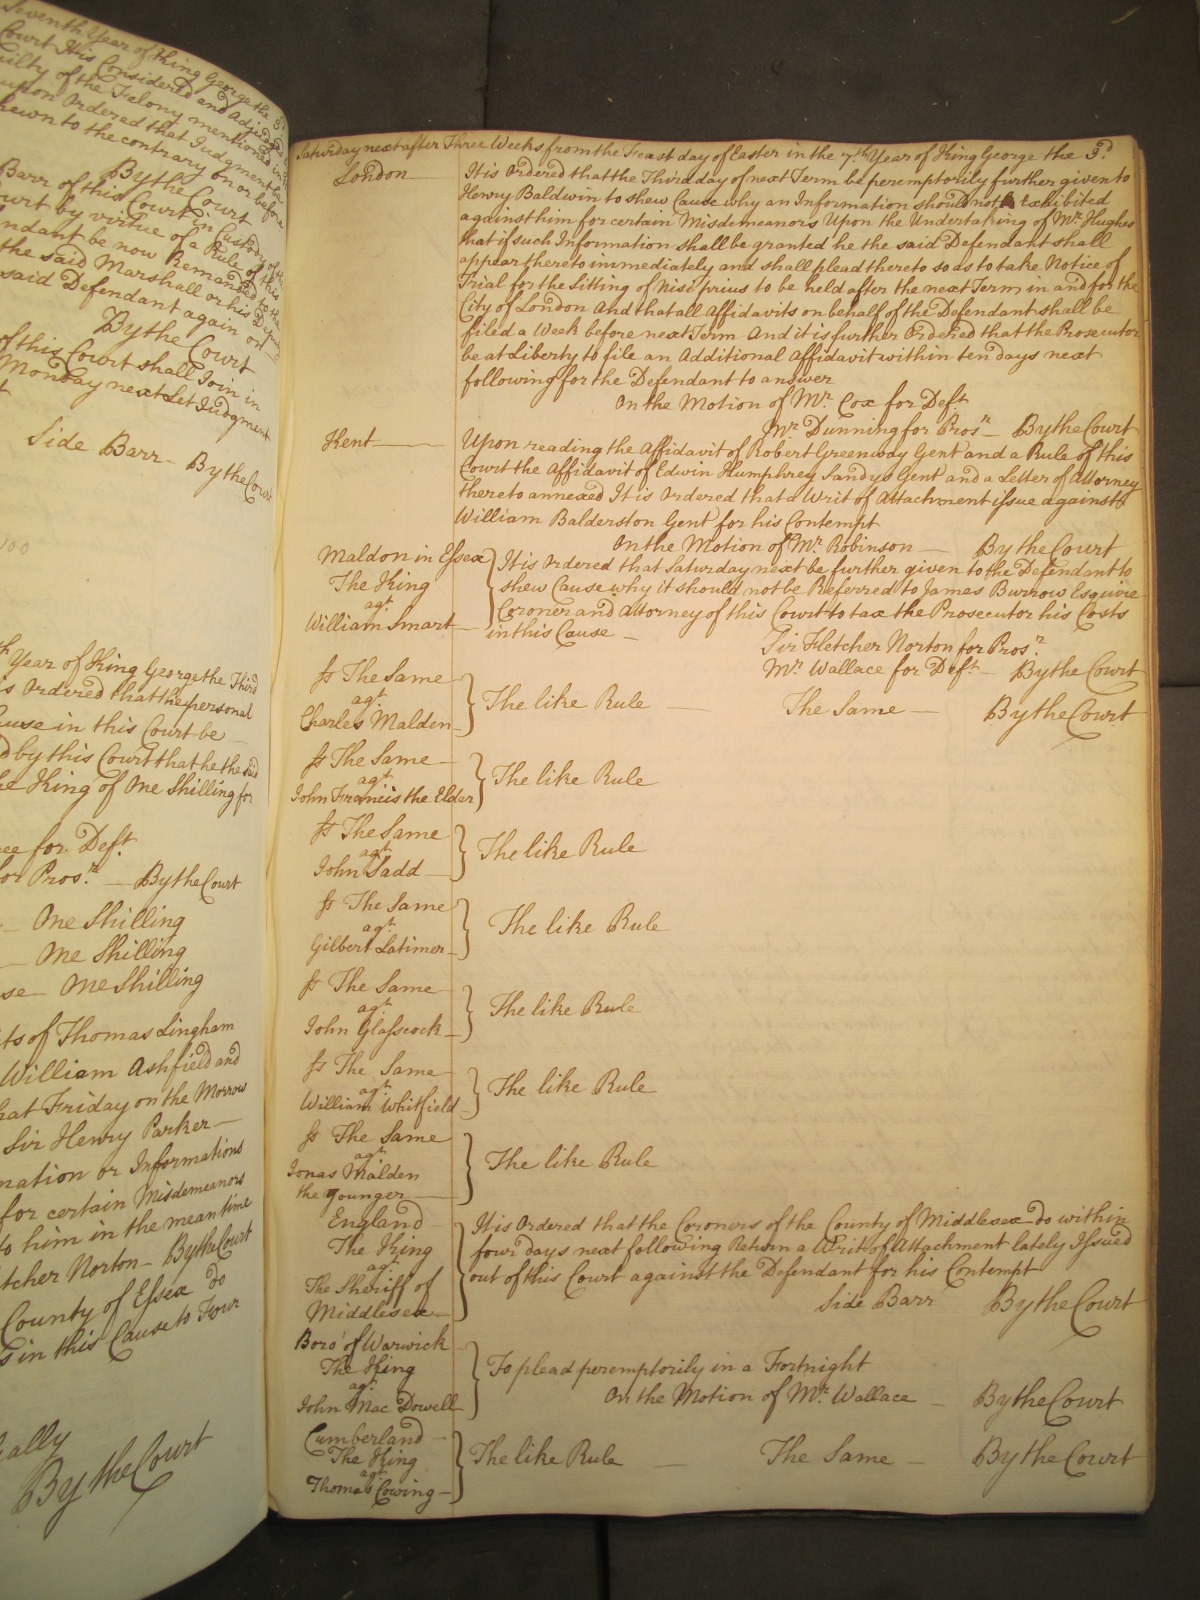 Seventh Year of King George the 3.d
Court It is Considered and Adjudged
Guilty of the Felony mentioned in
upon Ordered that Judgment be
shewn to the contrary on or before
By the Court
Barr of this Court in Custody of the
Court by virtue of a Rule of this
ndant be now Remanded to the
the said Marshall or his Deputy
said Defendant again on
By the Court
of this Court shall Join in
Monday next Let Judgment
Side Barr By the Court
100
th Year of King George the Third
is Ordered that the personal
Cause in this Court be
d by this Court that he the said
the King of One Shilling for
ce for Def.t
for Pros.r By the Court
One Shilling
One Shilling
se One Shilling
its of Thomas Lingham
William Ashfield and
that Friday on the Morrow
Sir Henry Parker
mation or Informations
for certain Misdemeanors
to him in the mean time
tcher Norton By the Court
County of Essex do
s in this Cause to Four
ally
By the Court
Saturday next after Three Weeks from the Feast day of Easter in the 7.th Year of King George the 3.d
London
It is Ordered that the Third day of next Term be peremptorily further given to
Henry Baldwin to shew Cause why an Information should not be exhibited
against him for certain Misdemeanors Upon the Undertaking of Mr. Hughes
that if such Information shall be granted he the said Defendant shall
appear thereto immediately and shall plead thereto so as to take Notice of
Trial for the Sitting of Nisi prius to be held after the next Term in and for the
City of London And that all Affidavits on behalf of the Defendant shall be
filed a Week before next Term And it is further Ordered that the Prosecutor
be at Liberty to file an Additional Affidavit within ten days next
following for the Defendant to answer
On the Motion of Mr. Cox for Def.t
Mr. Dunning for Pros.r By the Court
Kent
Upon reading the Affidavit of Robert Greenway Gent and a Rule of this
Court the Affidavit of Edwin Humphrey Sandys Gent and a Letter of Attorney
thereto annexed It is Ordered that a Writ of Attachment issue against
William Balderston Gent for his Contempt
On the Motion of Mr. Robinson By the Court
Maldon in Essex
The King
ag.t
William Smart
It is Ordered that Saturday next be further given to the Defendant to
shew Cause why it should not be Referred to James Burrow Esquire
Coroner and Attorney of this Court to tax the Prosecutor his Costs
in this Cause
Sir Fletcher Norton for Pros.r
Mr. Wallace for Def.t By the Court
Ss The Same
ag.t
Charles Malden
The like Rule The Same By the Court
Ss The Same
ag.t
John Francis the Elder
The like Rule
Ss The Same
ag.t
John Sadd
The like Rule
Ss The Same
ag.t
Gilbert Latimer
The like Rule
Ss The Same
ag.t
John Glasscock
The like Rule
Ss The Same
ag.t
William Whitfield
The like Rule
Ss The Same
ag.t
Jonas Malden
the younger
The like Rule
England
The King
ag.t
The Sheriff of
Middlesex
It is Ordered that the Coroners of the County of Middlesex do within
four days next following Return a Writ of Attachment lately Issued
out of this Court against the Defendant for his Contempt
Side Barr By the Court
Boro' of Warwick
The King
ag.t
John Mac Dowell
To plead peremptorily in a Fortnight
On the Motion of Mr. Wallace By the Court
Cumberland
The King
ag.t
Thomas Cowing
The like Rule The Same By the Court